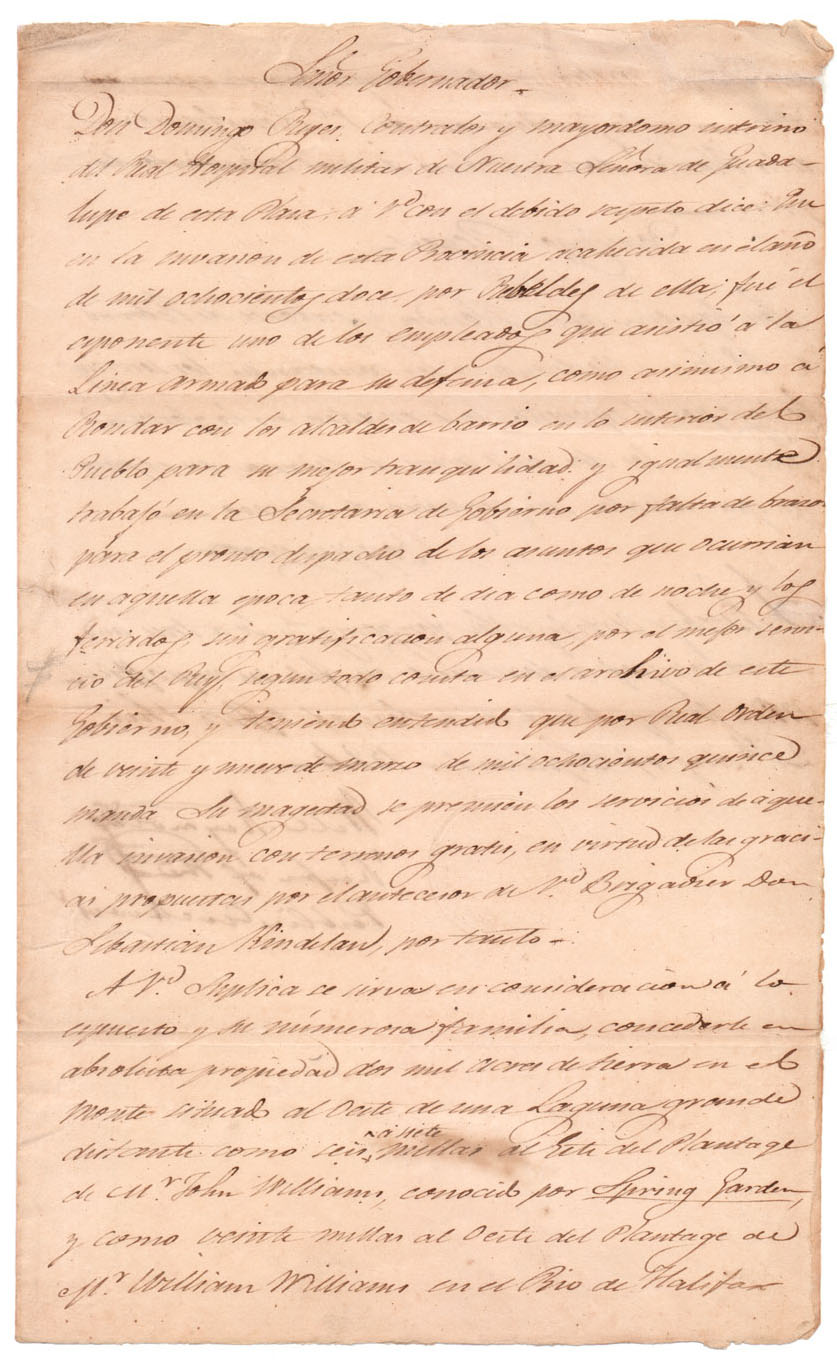 Señor Gobernador.
Don Domingo Reyes Contralor y mayordomo interino
del Real Hospital militar de Nuestra Señora de Guada-
lupe de esta Plaza, á V.d con el debido respeto dice: Que
en la invasion de esta Provincia acahecida en el año
de mil ochocientos doce, por Rebeldes de ella; fué el
exponente uno de los empleados que asistió á la
Linea armado para su defensa, como asimismo á
Rondar con los alcaldes de barrio en lo interior del
Pueblo para su mejor tranquilidad y igualmente
trabajó en la Secretaria de Gobierno por falta de brazos
para el pronto despacho de los asuntos que ocurrian
en aquella epoca, tanto de dia como de noche y los
feriados, sin gratificacion alguna, por el mejor servi-
cio del Rey, segun todo consta en el archivo de este
Gobierno, y teniendo entendido que por Real Orden
de veinte y nueve de marzo de mil ochocientos quince
manda Su magestad se premien los servicios de aque-
lla invasion con terrenos gratis, en virtud de las graci-
as propuestas por el antecesor de V.d Brigadier Don
Sebastian Kindelan, por tanto-
A V.d Suplica se sirva en consideracion á lo
espuesto y su númerosa familia, concederle en
absoluta propiedad dos mil acres de tierra en el
Monte situado al Oeste de una Laguna grande
distante como seis á siete millas al Este del Plantage
de Mr. John Williams, conocido por Spring Garden,
y como veinte millas al Oeste del Plantage de
Mr. William Williams en el Rio de Halifax